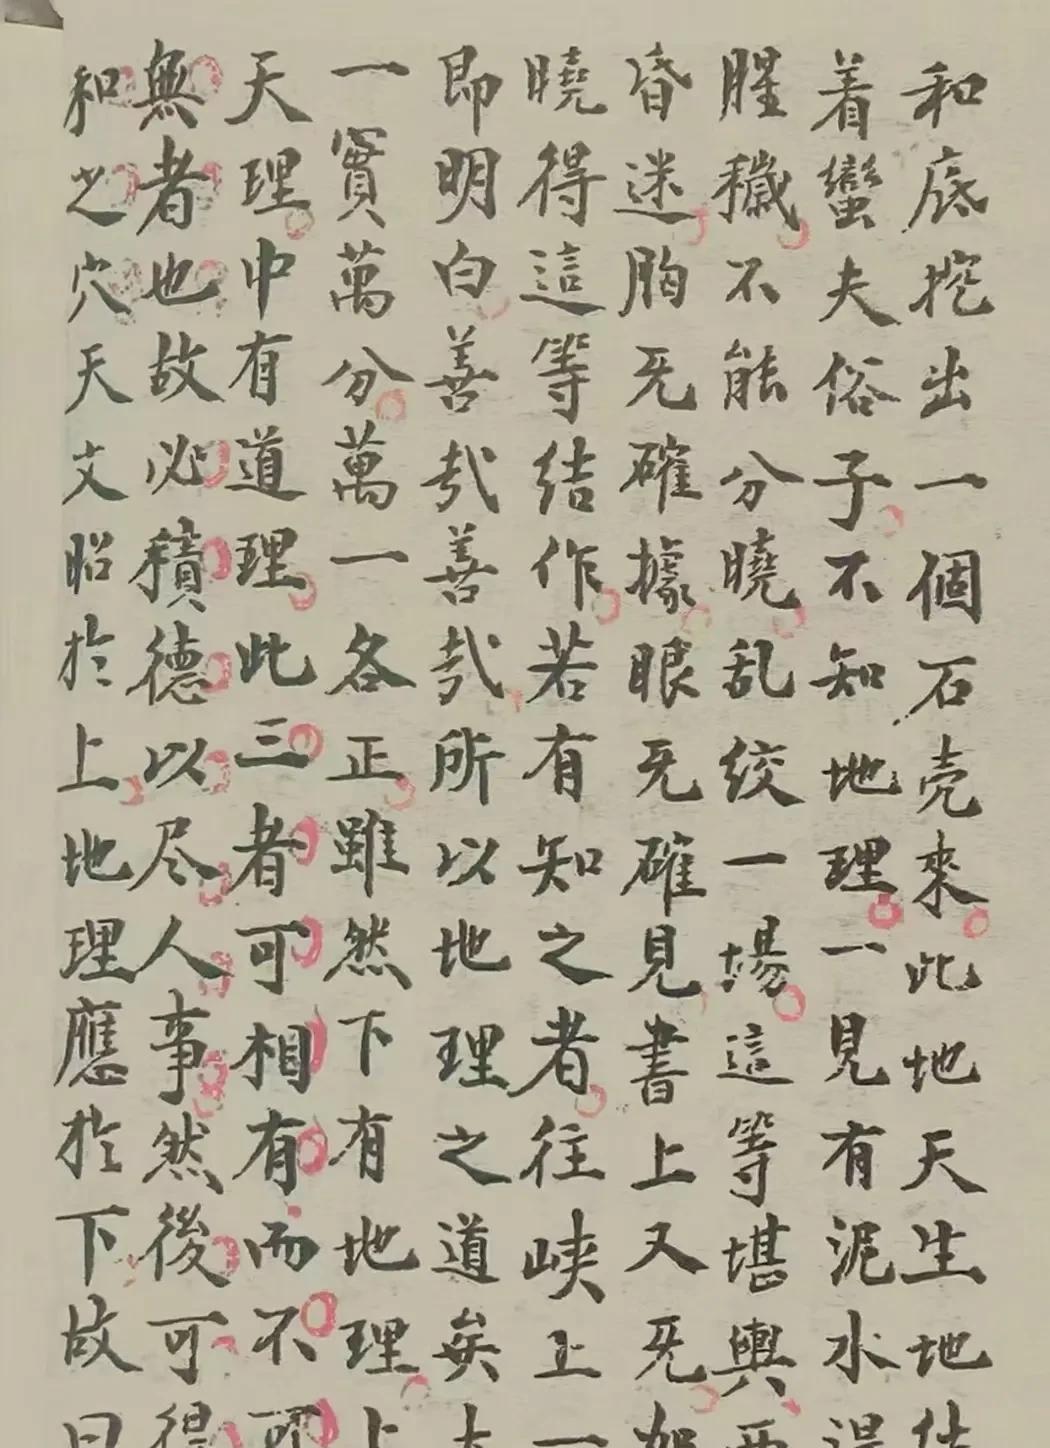 和底挖出一個石壳來此地天生地
着蠻夫俗子不知地理一見有泥水
腥穢不能分曉乱绞一場這等堪輿
昏迷胸旡確據眼旡確見書上又旡
曉得這等结作若有知之者往峡上一
即明白善哉善哉所以地理之道矣
一實萬分萬一各正雖然下有地理上
天理中有道理此三者可相有而不可
無者也故必積德以尽人事然後可得
和之穴天文昭於上地理應於下故曰